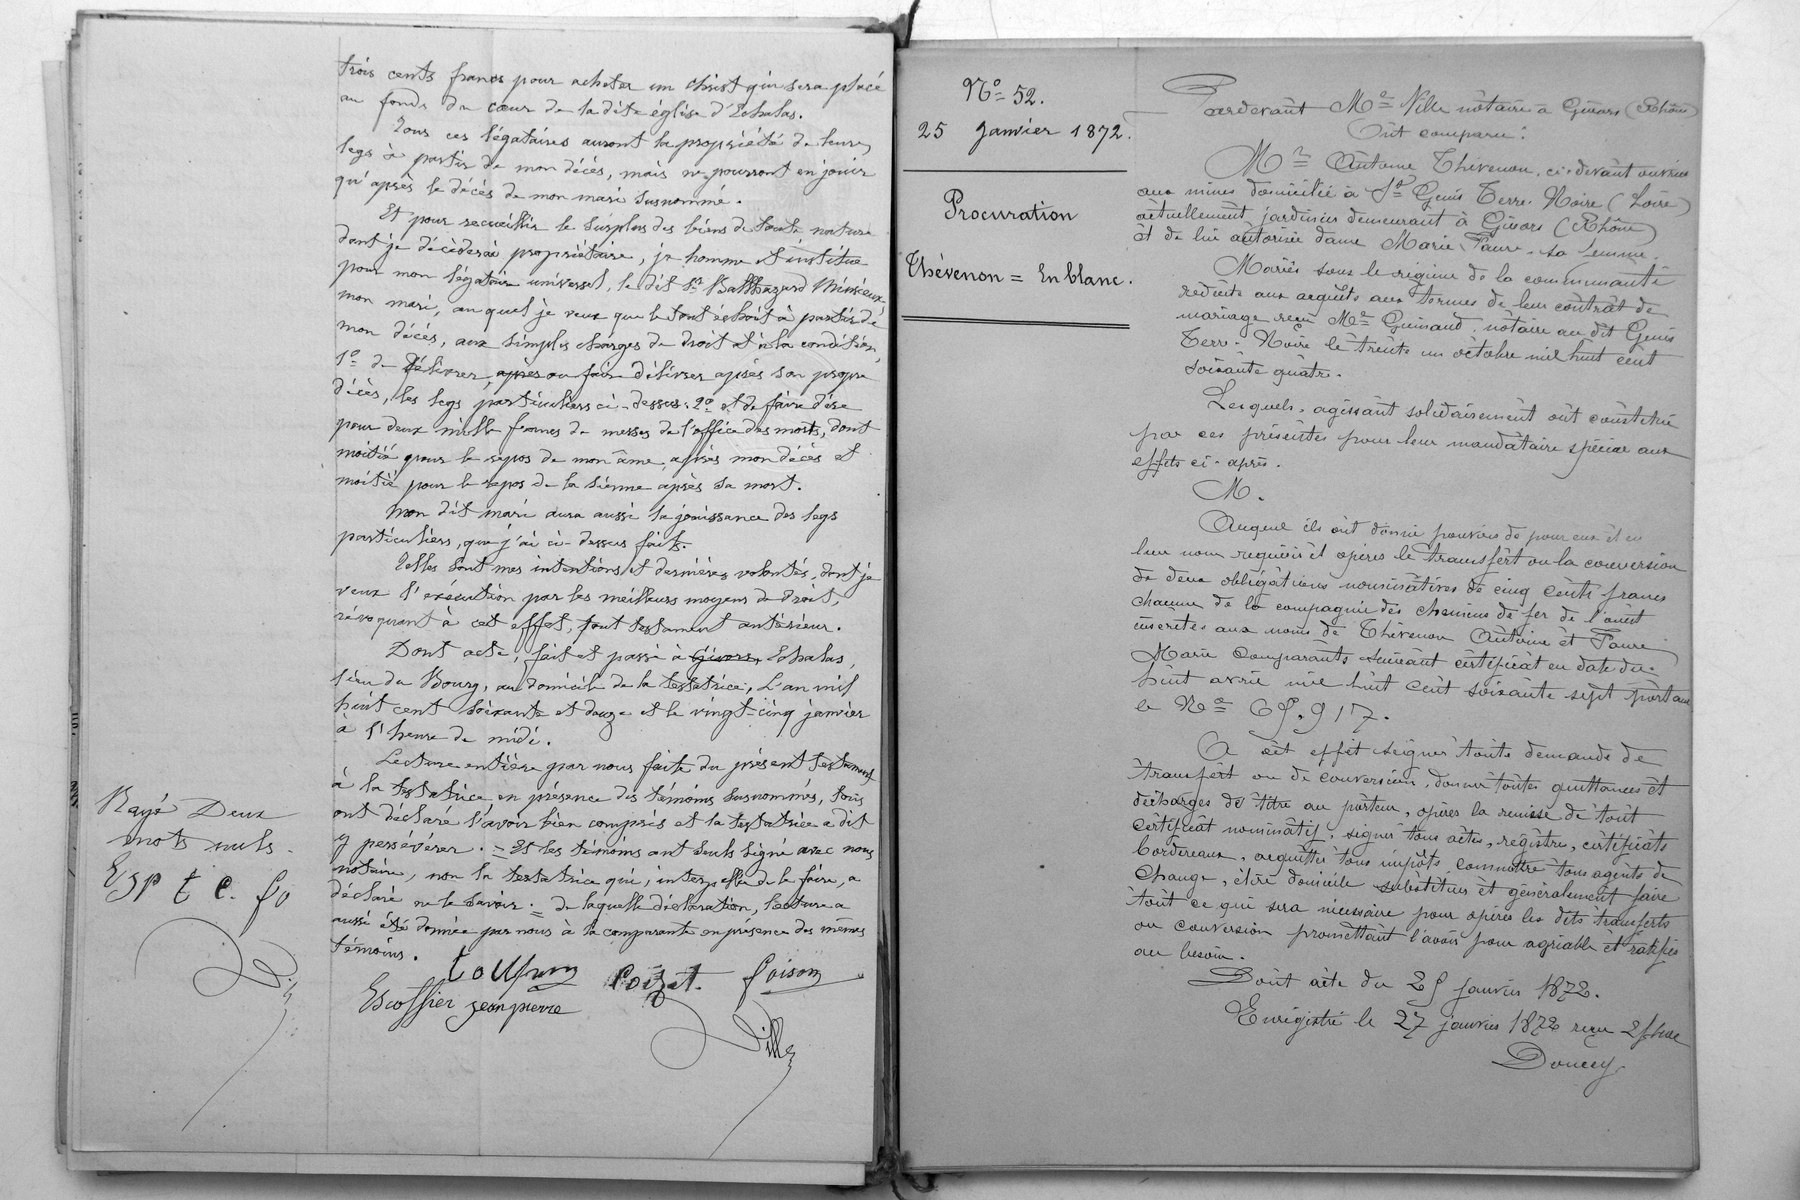 trois cents francs pour acheter un christ qui sera placé
au fonds du cœur de la dite église d'Echalas.
Tous ces légataires auront la propriété de leurs
legs à partir de mon décès, mais ne pourront en jouir
qu'après le décès de mon mari susnommé.
Et pour recueillir le surplus des biens de toute nature
dont je décèderai propriétaire, je nomme et institue
pour mon légataire universel, le dit Sr Balthazard
mon mari, auquel je veux que le tout échoit à partir de
mon décès, aux simples charges de droit et à la condition,
1o de délivrer, après ou faire délivrer après son propre
décès, les legs particuliers ci-dessus. 2o et de faire dire
pour deux mille francs de messes de l'office des morts, dont
moitié pour le repos de mon âme, après mon décès et
moitié pour le repos de la sienne après sa mort.
Mon dit mari aura aussi la jouissance des legs
particuliers, que j'ai ci-dessus faits.
Telles sont mes intentions et dernières volontés, dont je
veux l'exécution par les meilleurs moyens de droit,
révoquant à cet effet, tout testament antérieur.
Dont acte, fait et passé à Givors, Echalas,
lieu du Bourg, au domicile de la testatrice, L'an mil
huit cent soixante et douze et le vingt-cinq janvier
à l'heure de midi.
Lecture entière par nous faite du présent testament
à la testatrice en présence des témoins susnommés, tous
ont déclaré l'avoir bien compris et la testatrice a dit
y persévérer. = Et les témoins ont seuls signé avec nous
notaire, non la testatrice qui, interpellée de le faire, a
déclaré ne le savoir. = de laquelle déclaration, lecture a
aussi été donnée par nous à la comparante en présence des mêmes
témoins.
Poizat. foison
Escoffier jean pierre
Ville
Rayé Deux
mots nuls.
E J P t C. fo
No 52.
25 Janvier 1872.
Procuration
Thévenon = En blanc.
Pardevant Me Ville notaire à Givors (Rhône)
Ont comparu:
Mr Antoine Thévenon, ci-devant ouvrier
aux mines domicilié à St Genis Terre-Noire (Loire)
actuellement jardinier demeurant à Givors (Rhône)
et de lui autorisée dame Marie Faure sa femme.
Mariés sous le régime de la communauté
réduite aux acquêts aux termes de leur contrat de
mariage reçu Me Guinand, notaire au dit Genis
Terre-Noire le trente un octobre mil huit cent
soixante quatre.
Lesquels, agissant solidairement ont constitué
par ces présentes pour leur mandataire spécial aux
effets ci-après.
M.
Auquel ils ont donné pouvoir de pour eux et en
leur nom requérir et opérer le transfert ou la conversion
de deux obligations nominatives de cinq cents francs
chacune de la compagnie des chemins de fer de l'ouest
inscrites aux noms de Thévenon Antoine et Faure
Marie comparants suivant certificat en date du
huit avril mil huit cent soixante sept portant
le No 65.917.
A cet effet signer toute demande de
transfert ou de conversion, donner toutes quittances et
décharges de titre au porteur, opérer la remise de tout
certificat nominatif, signer tous actes, registre, certificats
bordereaux, acquitter tous impôts, commettre tous agents de
change, élire domicile substituer et généralement faire
tout ce qui sera nécessaire pour opérer les dits transferts
ou conversion promettant l'avoir pour agréable et ratifier
au besoin.
Dont acte du 25 janvier 1872.
Enregistré le 27 janvier 1872 reçu
Doucey